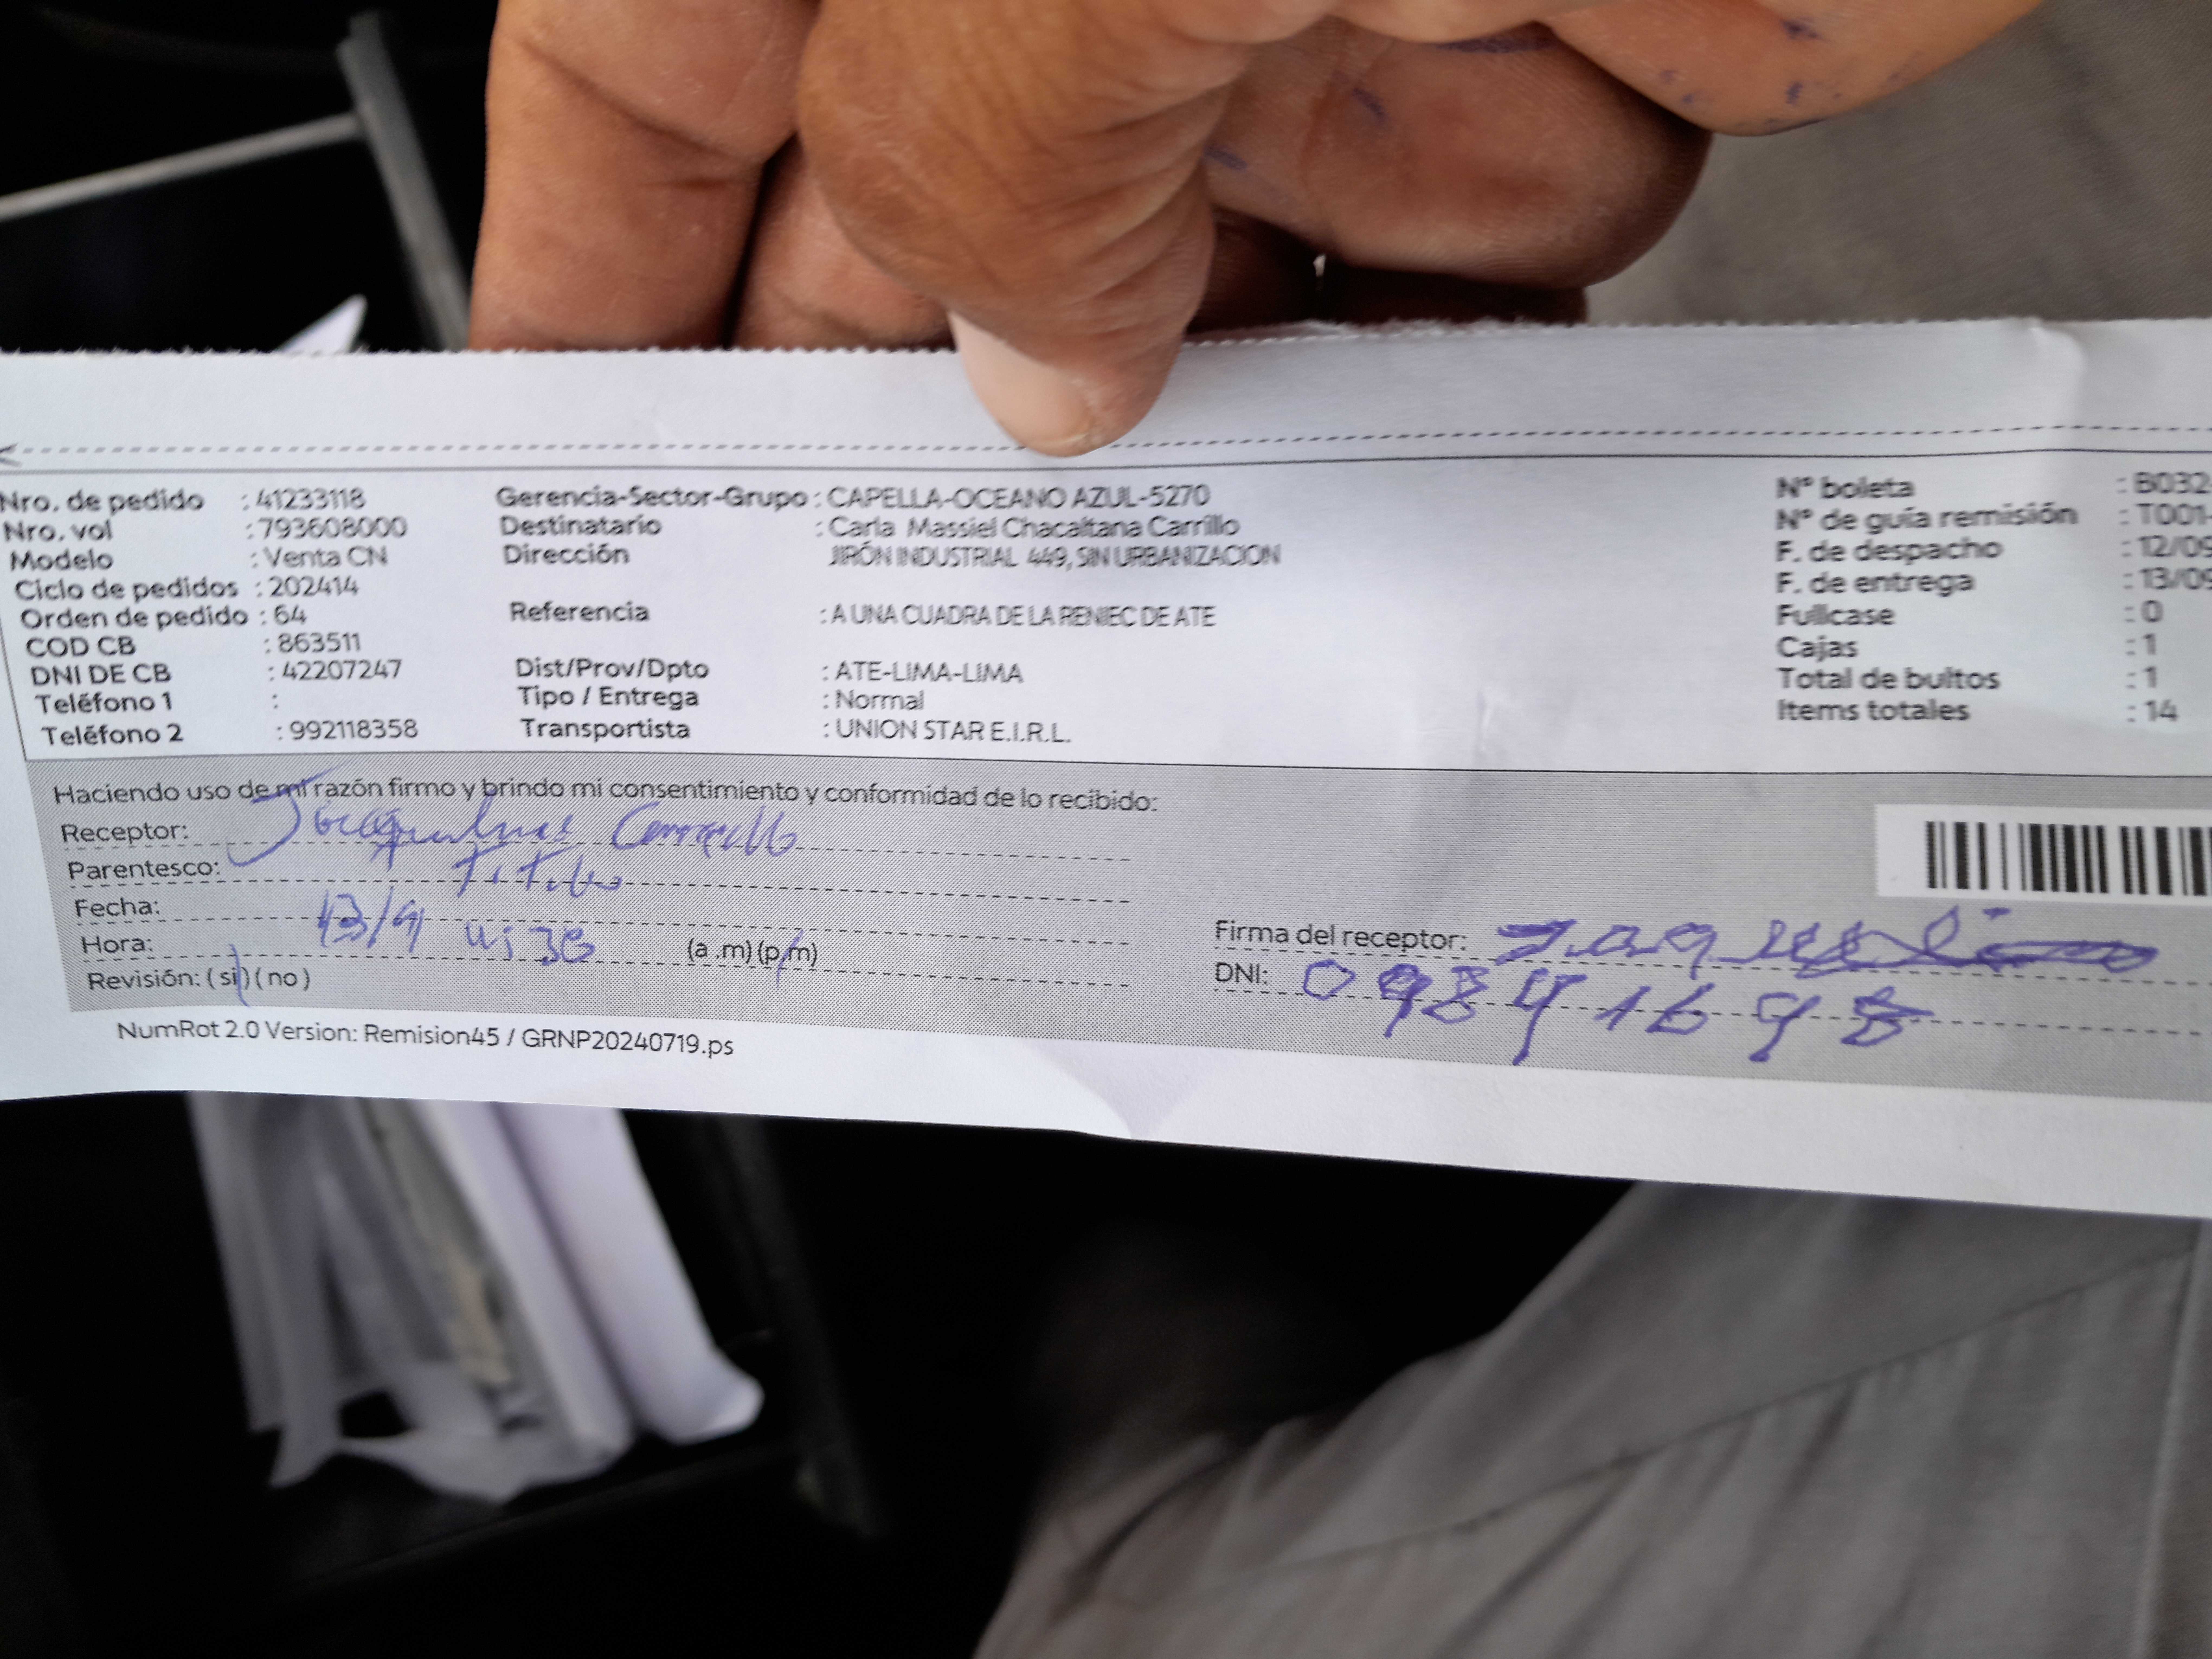 Nro. de pedido : 41233118
Nro. vol : 793608000
Modelo : Venta CN
Ciclo de pedidos : 202414
Orden de pedido : 64
COD CB : 863511
DNI DE CB : 42207247
Teléfono 1 :
Teléfono 2 : 992118358
Gerencia-Sector-Grupo : CAPELLA-OCEANO AZUL-5270
Destinatario : Carla Massiel Chacaltana Carrillo
Dirección JIRÓN INDUSTRIAL 449, SIN URBANIZACION
Referencia : A UNA CUADRA DE LA RENIEC DE ATE
Dist/Prov/Dpto : ATE-LIMA-LIMA
Tipo / Entrega : Normal
Transportista : UNION STAR E.I.R.L.
N° boleta : B032-
N° de guía remisión : T001-
F. de despacho : 12/09
F. de entrega : 13/09
Fullcase : 0
Cajas : 1
Total de bultos : 1
Items totales : 14
Haciendo uso de mi razón firmo y brindo mi consentimiento y conformidad de lo recibido:
Receptor:
Parentesco:
Fecha: 13/9
Hora: (a .m) (p.m)
Revisión: ( si ) ( no )
Firma del receptor:
DNI: 09841698
NumRot 2.0 Version: Remision45 / GRNP20240719.ps